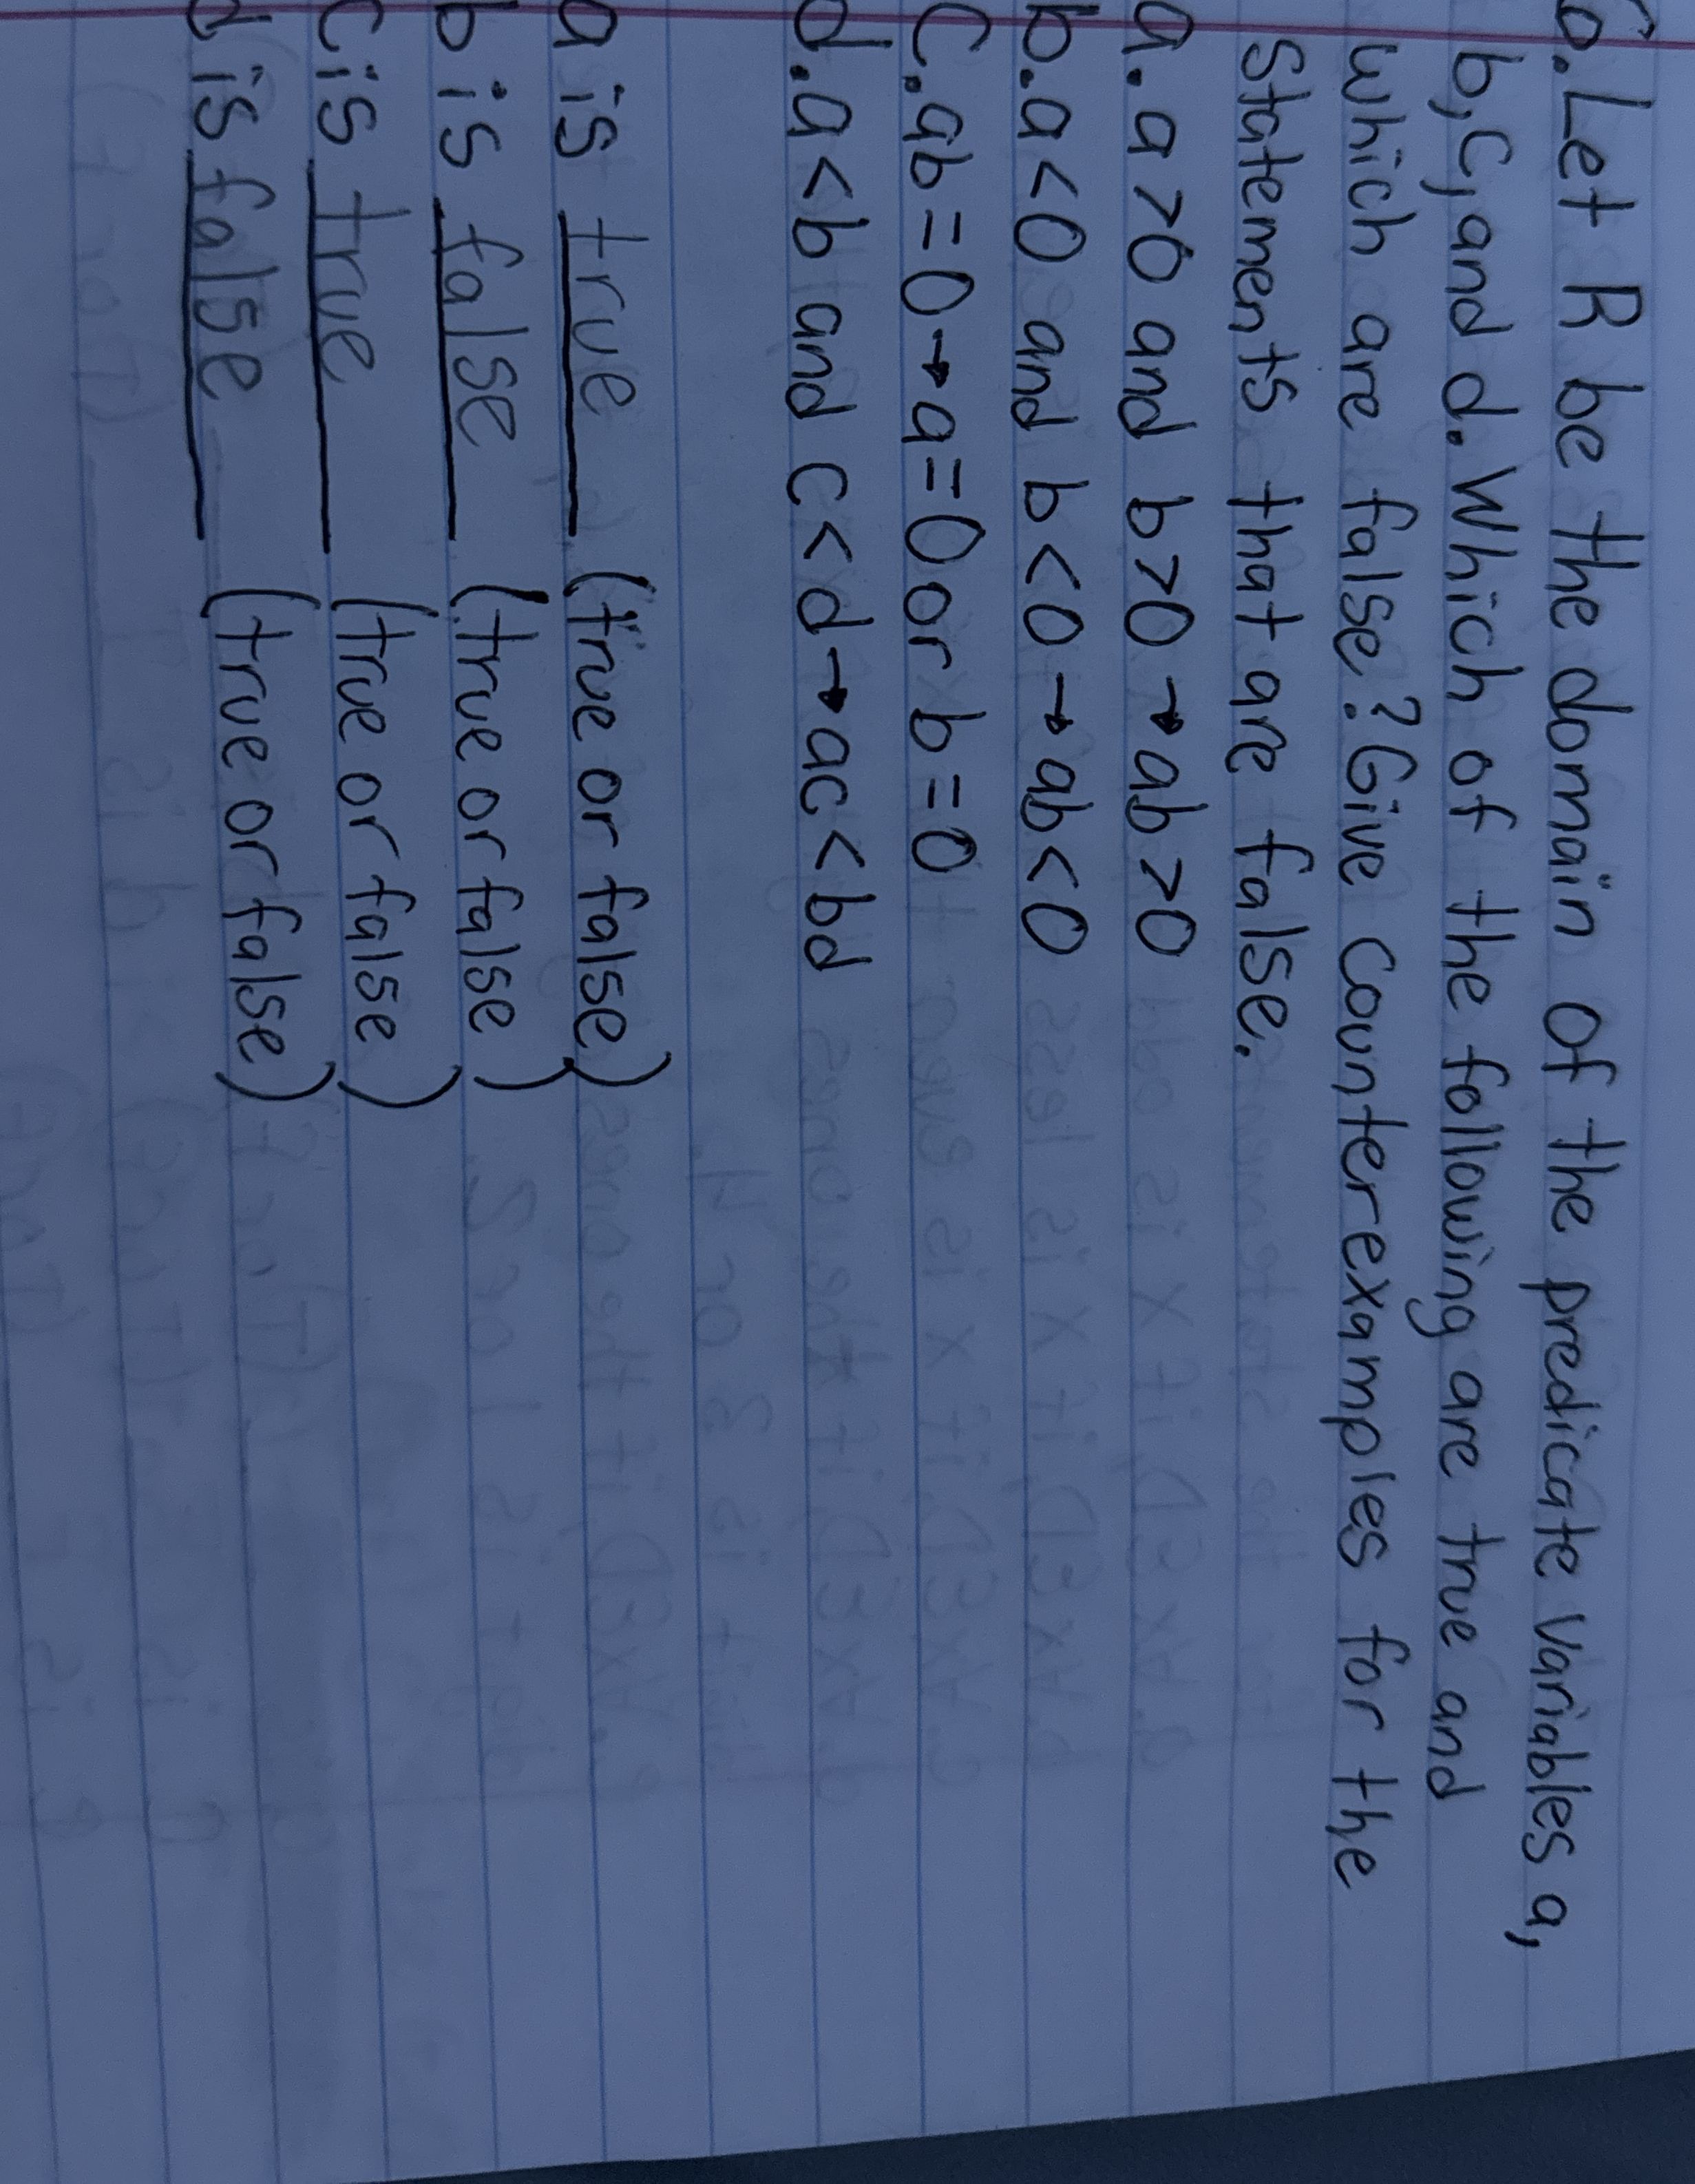 6. Let R be the domain of the predicate variables a,
b, c, and d. Which of the following are true and
which are false? Give counterexamples for the
statements that are false.
a. a > 0 and b > 0 → ab > 0
b. a < 0 and b < 0 → ab < 0
C. ab = 0 → a = 0 or b = 0
d. a < b and c < d → ac < bd
a is true (true or false)
b is false (true or false)
c is true (true or false)
d is false (true or false)